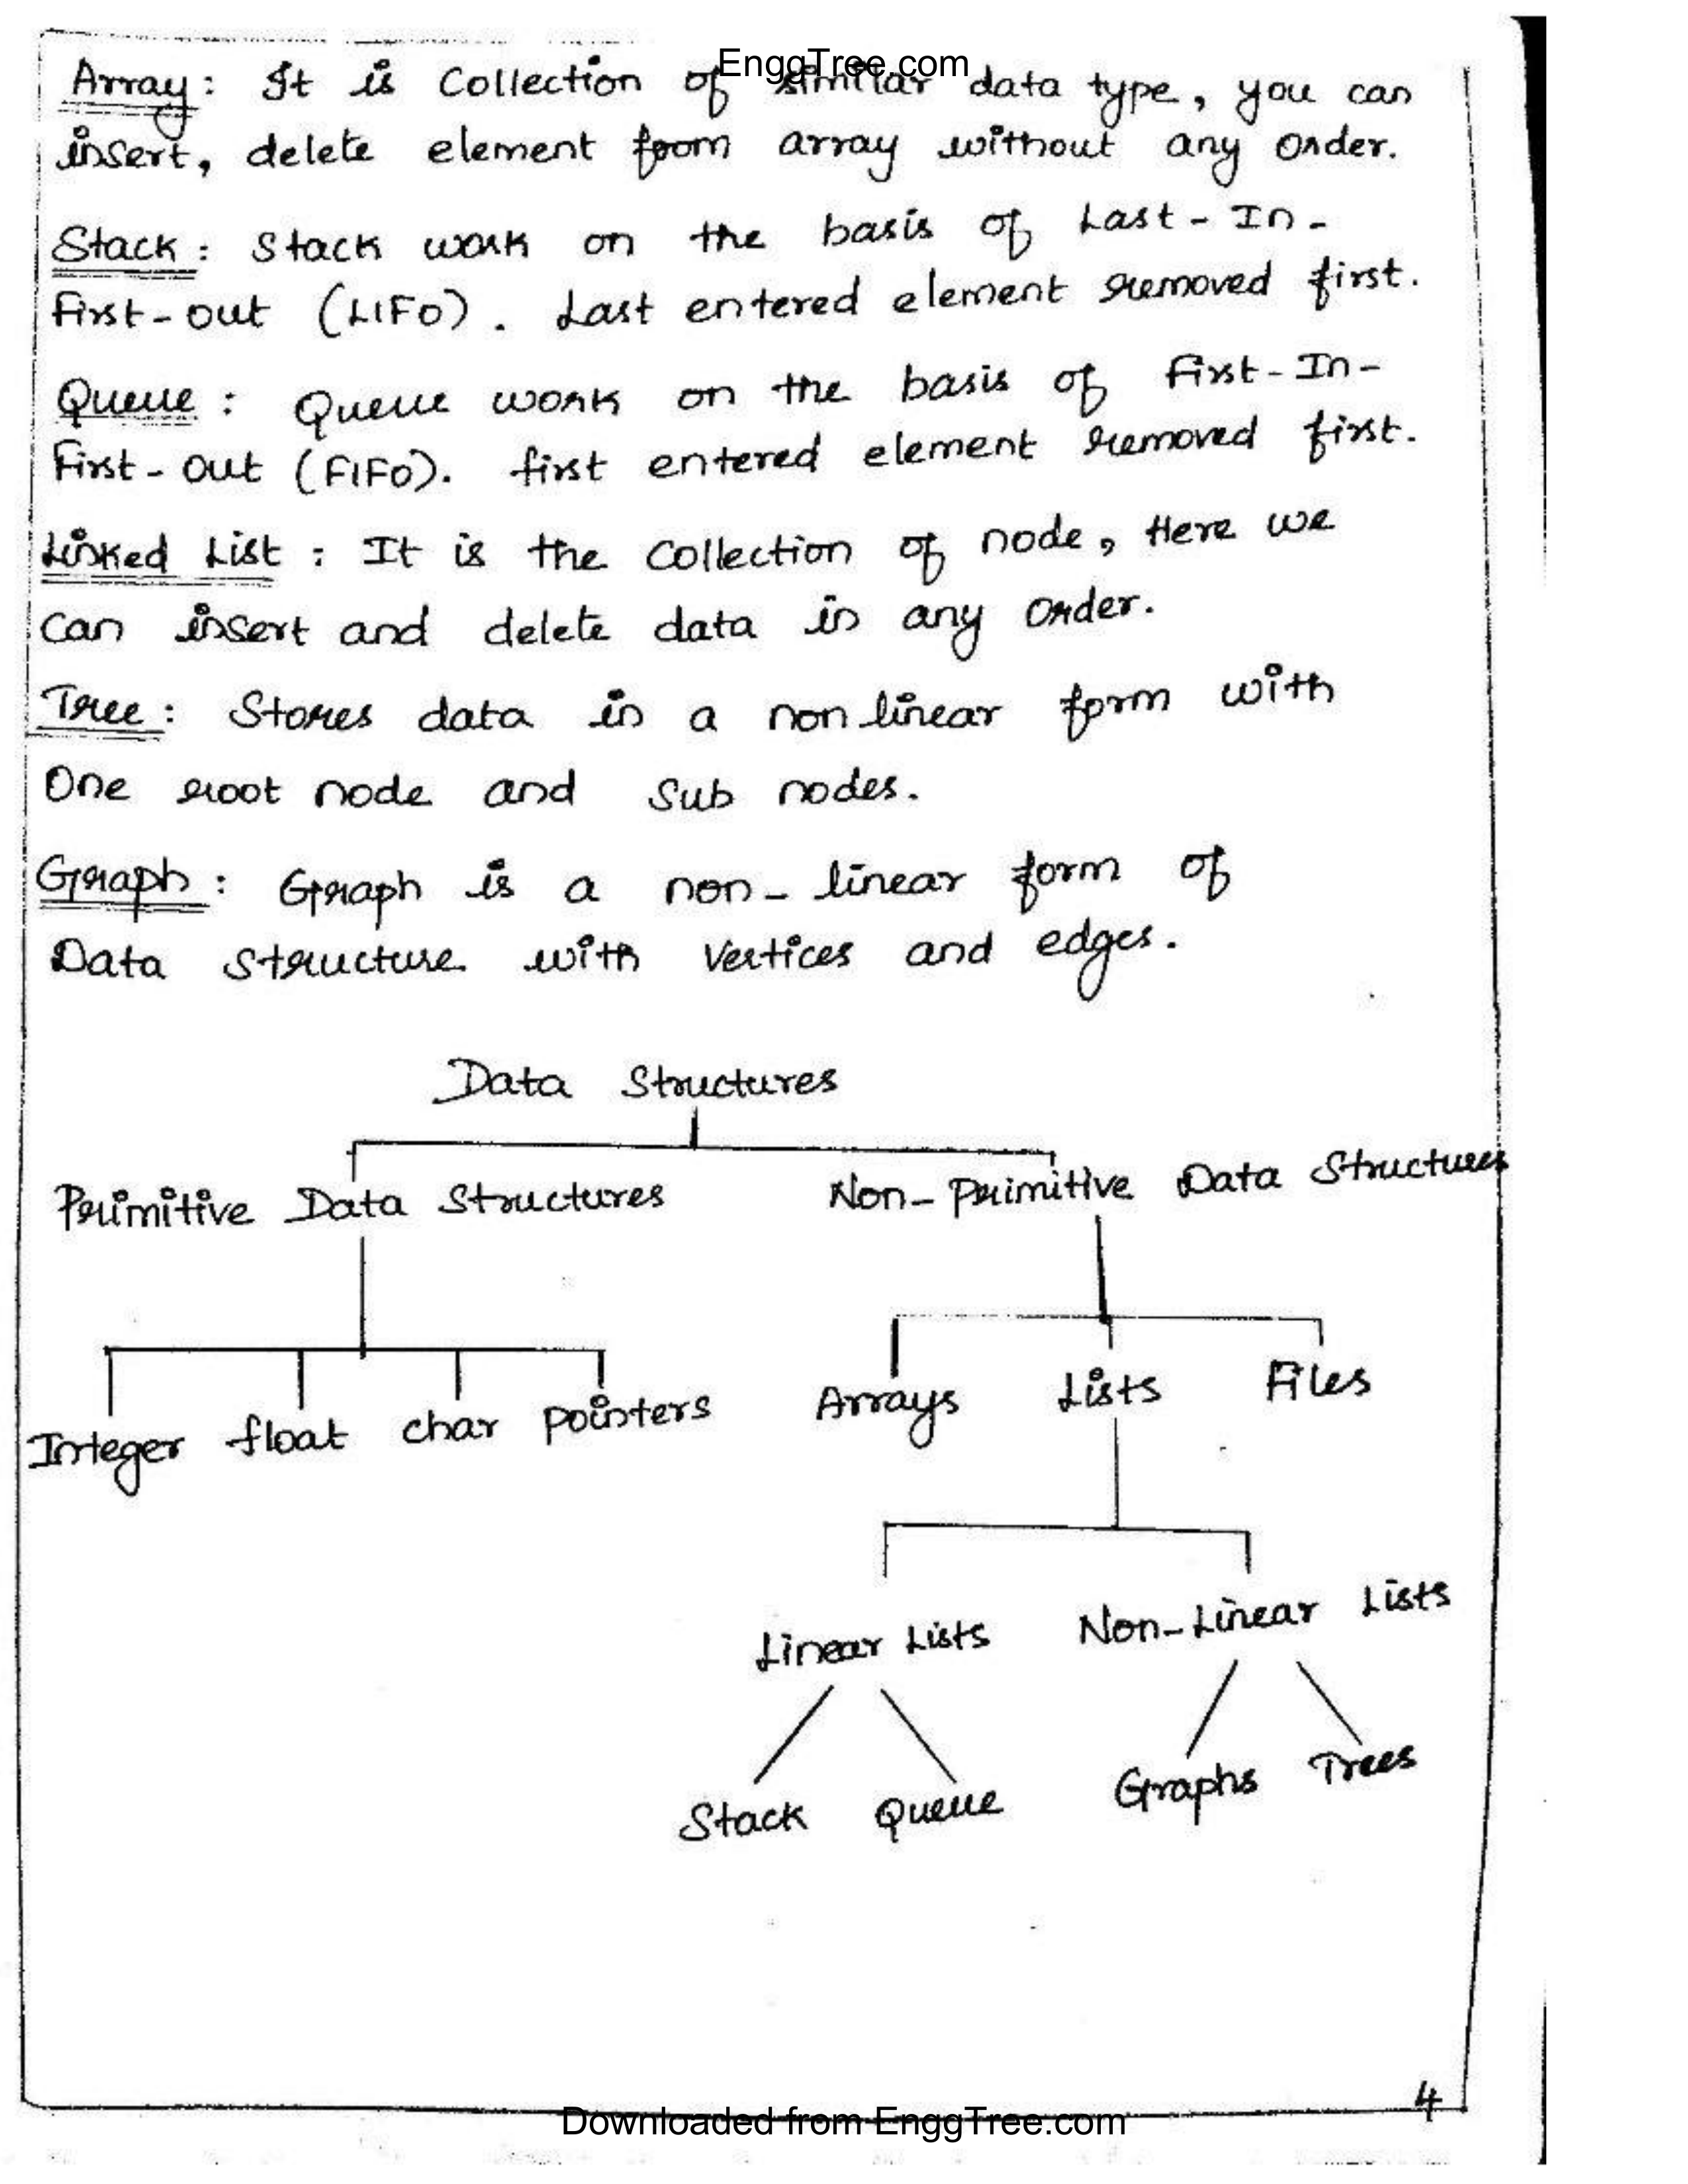 EnggTree.com
Array: It is Collection of similar data type, you can
insert, delete element from array without any order.
Stack: Stack work on the basis of Last-In-
First-out (LIFO). Last entered element removed first.
Queue: Queue work on the basis of First-In-
First-out (FIFO). first entered element removed first.
Linked List: It is the collection of node, Here we
can insert and delete data in any order.
Tree: Stores data in a non linear form with
One root node and sub nodes.
Graph: Graph is a non-linear form of
Data structure with vertices and edges.
Data Structures
Primitive Data Structures Non-Primitive Data Structures
Integer float char pointers Arrays Lists Files
Linear Lists Non-Linear Lists
Stack Queue Graphs Trees
4
Downloaded from EnggTree.com